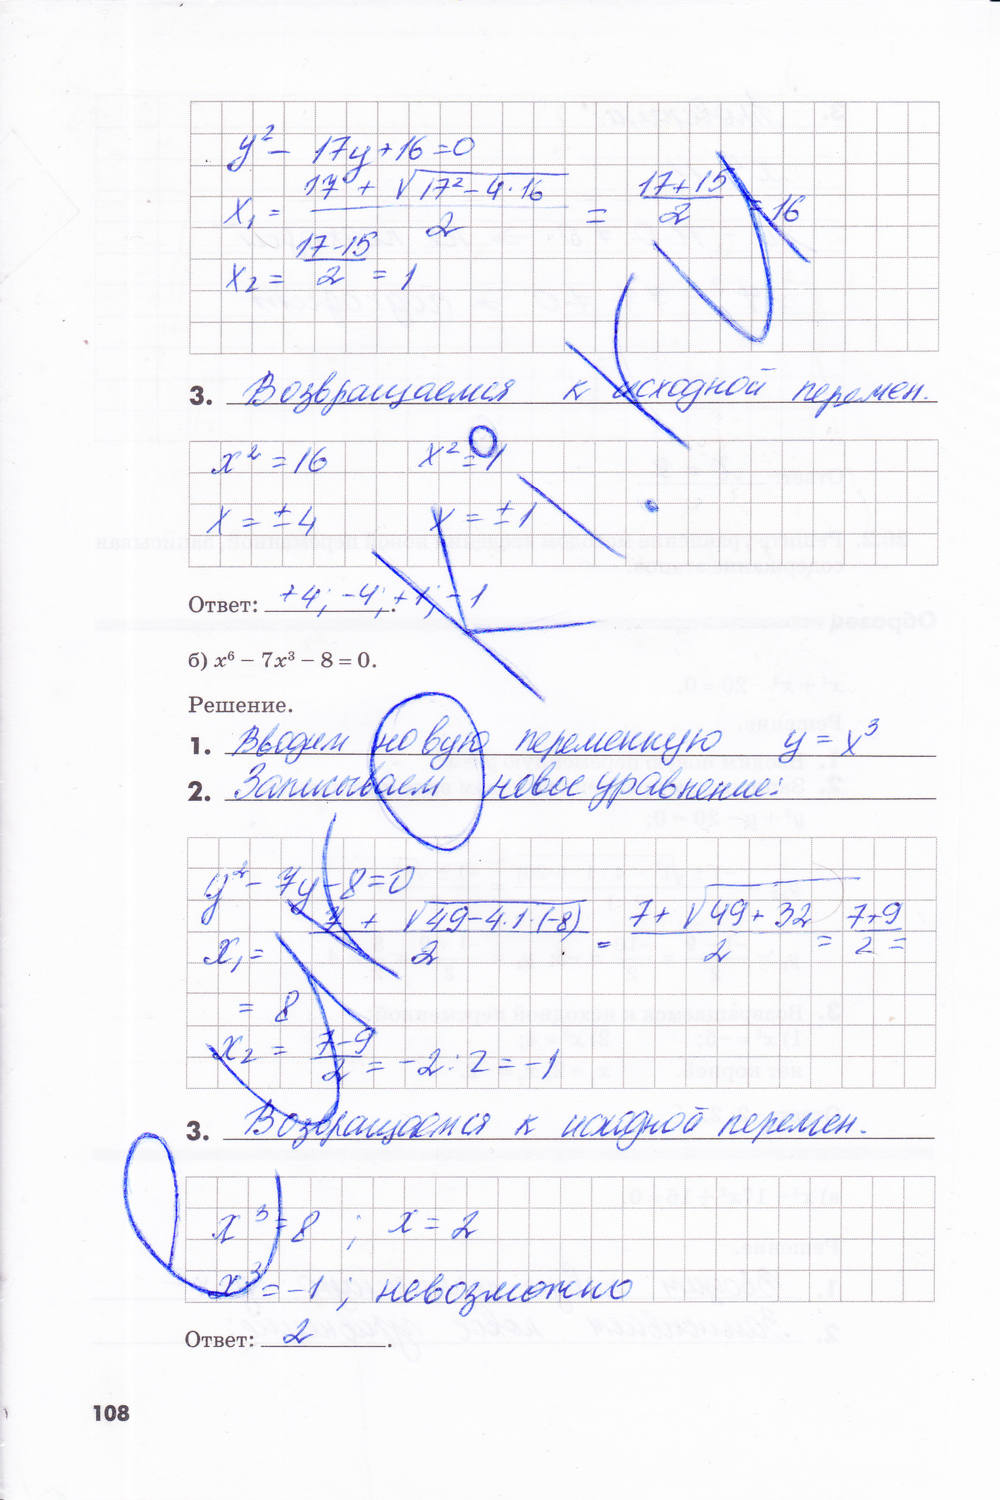 y² - 17y + 16 = 0
x₁ = (17 + √(17² - 4·16))/2 = (17+15)/2 = 16
x₂ = (17-15)/2 = 1
3. Возвращаемся к исходной перемен.
x² = 16 x² = 1
x = ±4 x = ±1
Ответ: +4; -4; +1; -1.
б) x⁶ – 7x³ – 8 = 0.
Решение.
1. Вводим новую переменную y = x³
2. Записываем новое уравнение:
y² - 7y - 8 = 0
x₁ = (7 + √(49-4·1·(-8)))/2 = (7 + √(49+32))/2 = (7+9)/2 =
= 8
x₂ = (7-9)/2 = -2 : 2 = -1
3. Возвращаемся к исходной перемен.
x³ = 8 ; x = 2
x³ = -1 ; невозможно
Ответ: 2.
108